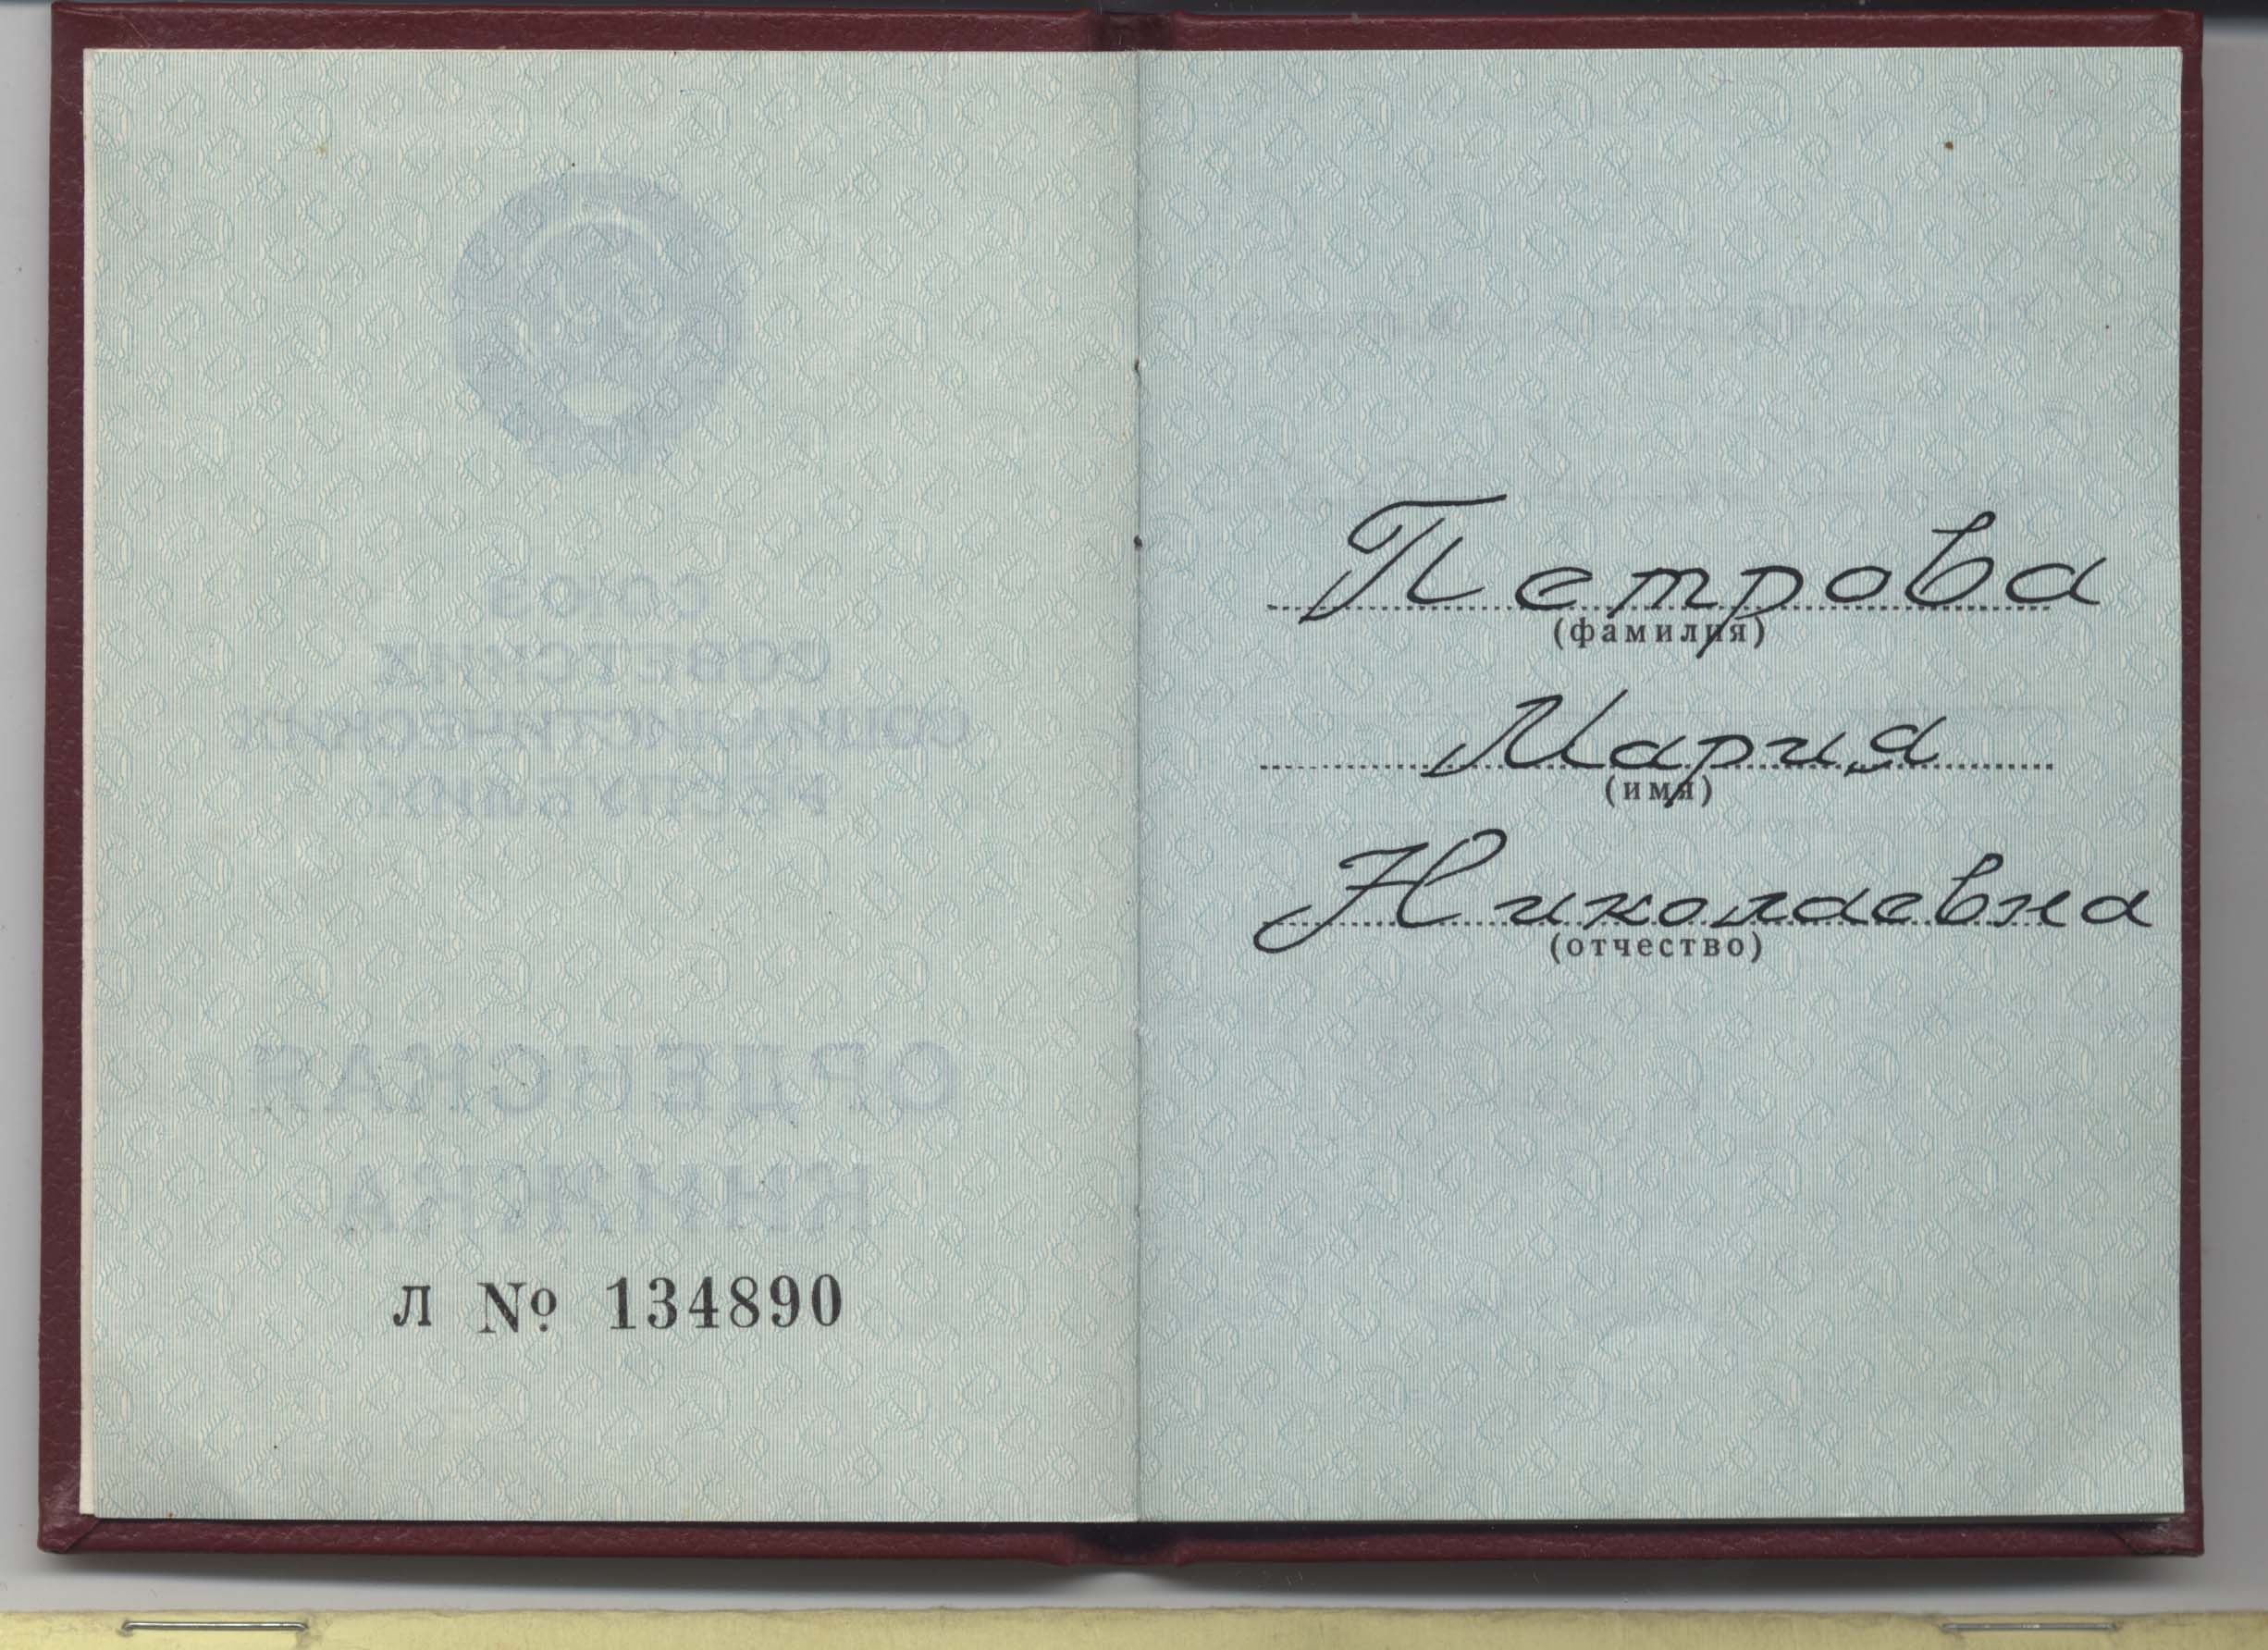 СОЮЗ
СОВЕТСКИХ
СОЦИАЛИСТИЧЕСКИХ
РЕСПУБЛИК
ОРДЕНСКАЯ
КНИЖКА
Л № 134890
Петрова
(фамилия)
Мария
(имя)
Николаевна
(отчество)